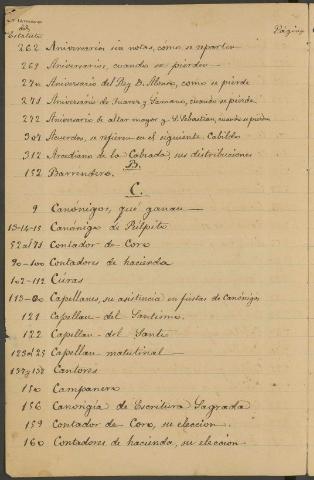 Número
del
Estatuto
Página
262 Aniversarios sin notas, como se reparten
269 Aniversarios, cuando se pierden
270 Aniversario del Rey D. Alonso, como se pierde
271 Aniversario de Suarez y Samano, cuando se pierde
272 Aniversario de altar mayor y S. Sebastian, cuando se pierden
307 Acuerdos, se refieren en el siguiente Cabildo
312 Arcediano de la Cabrada, sus distribuciones
B.
152 Barrendero.
C.
9 Canónigos, qué ganan
13-14-15 Canónigo de Púlpito
52 a 75 Contador de Coro
90-100 Contadores de hacienda
102-112 Curas
113-60 Capellanes, su asistencia en fiestas de Canónigos
121 Capellan del Santísimo
122 Capellan del Santí
123 a 125 Capellan matutinal
137 y 138 Cantores
150 Campanero
156 Canongía de Escritura Sagrada
159 Contador de Coro, su eleccion
160 Contadores de hacienda, su eleccion